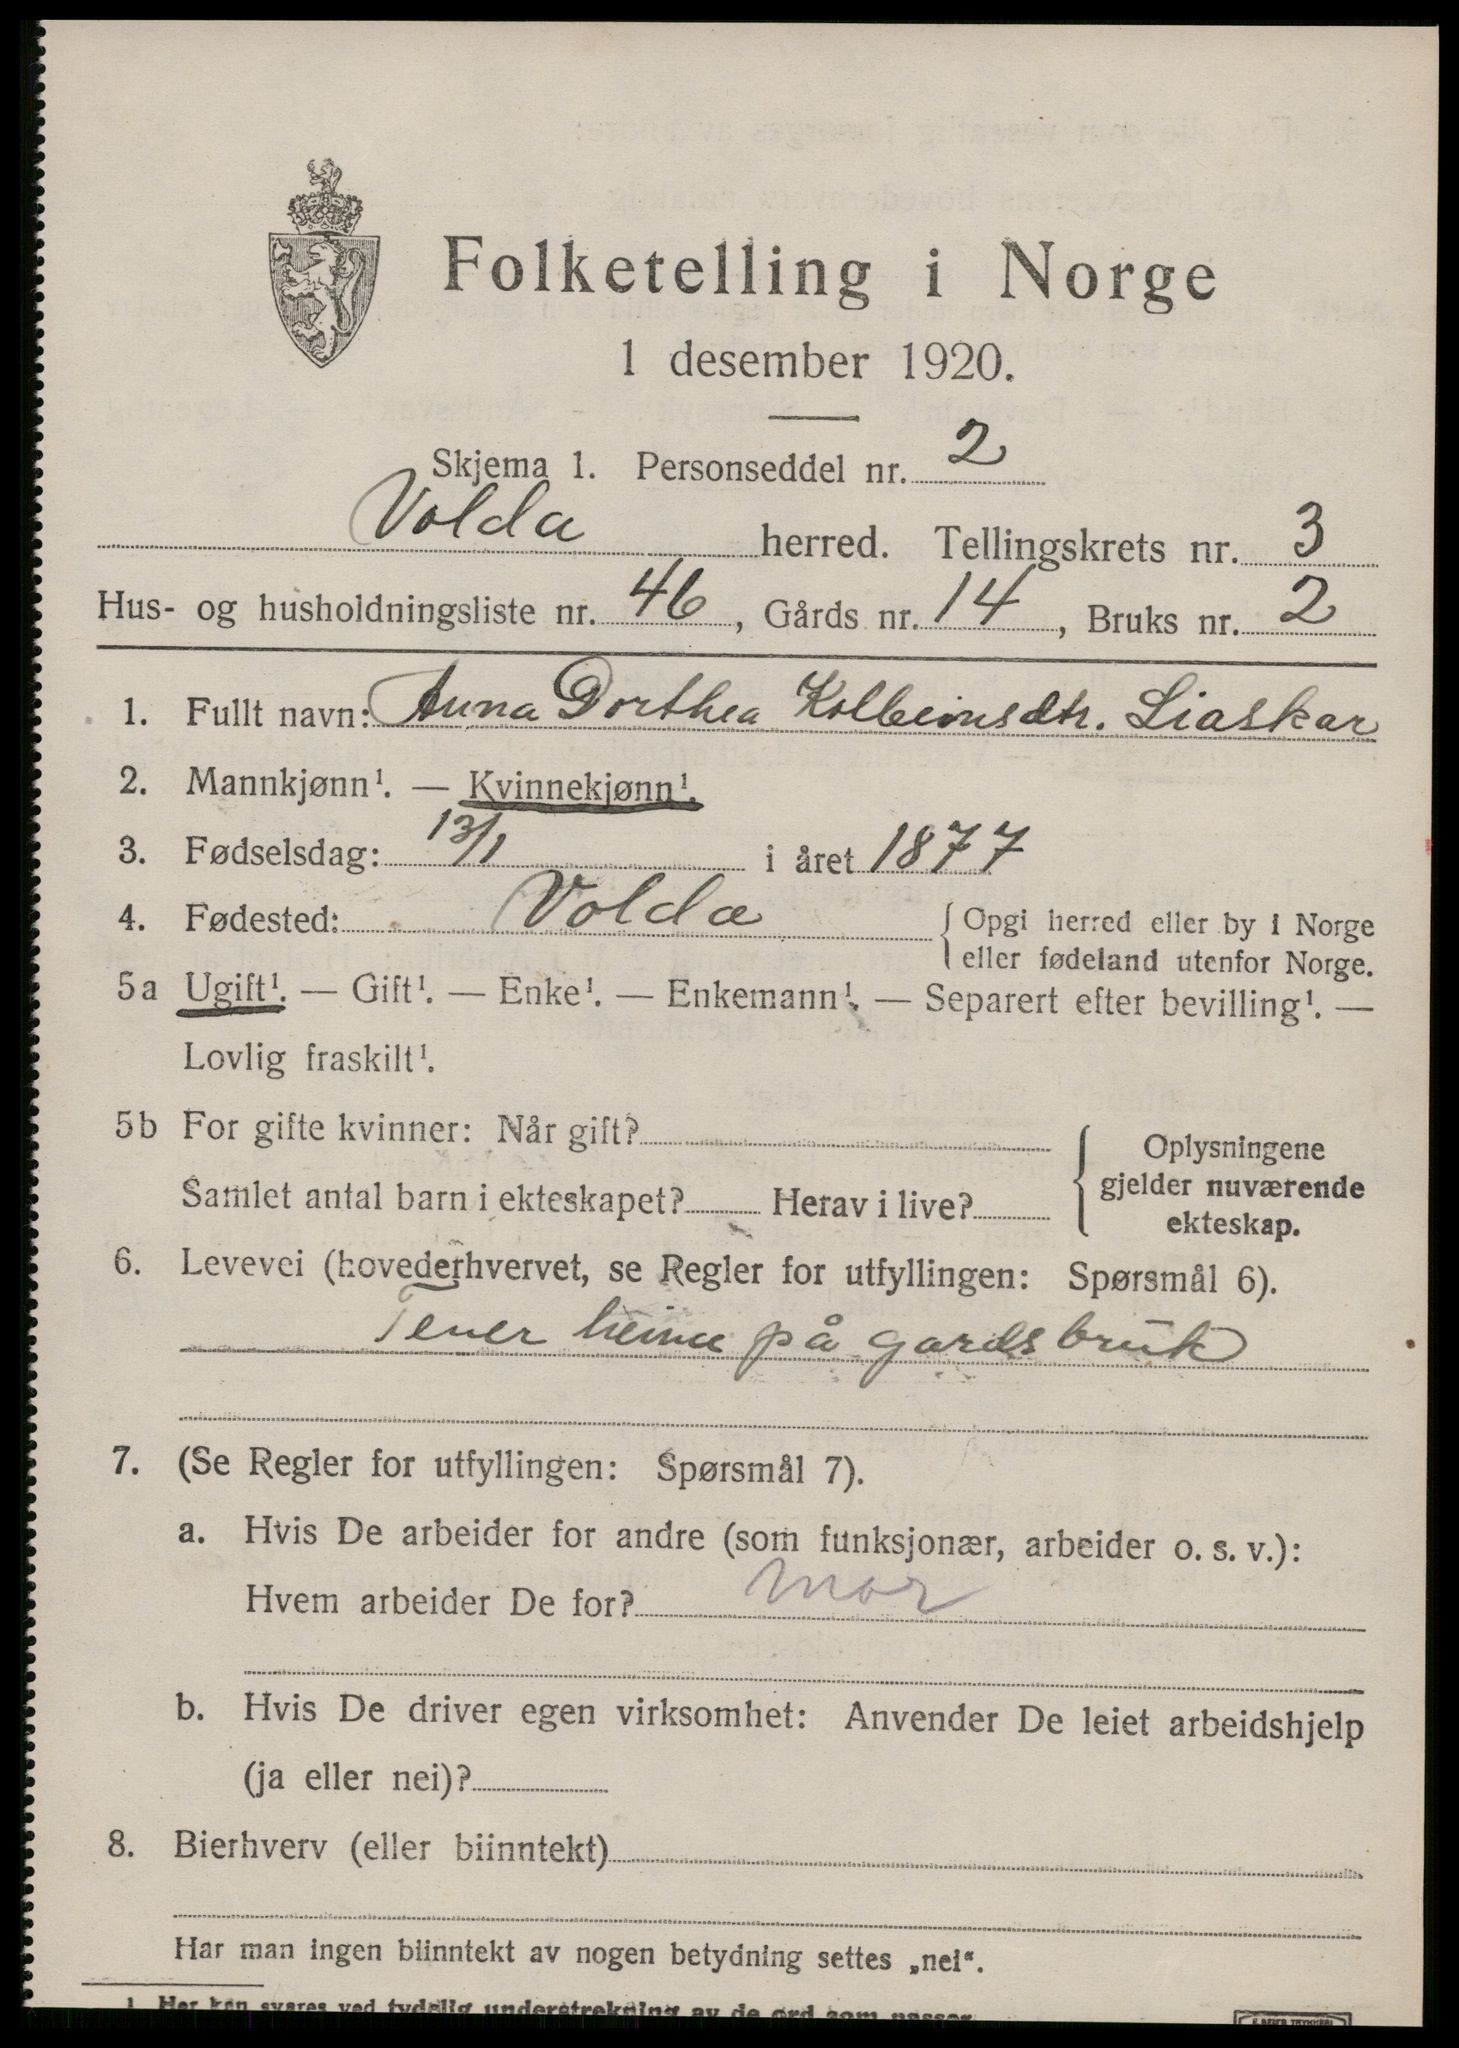 Folketelling i Norge
1 desember 1920.
Skjema 1. Personseddel nr. 2
Volda herred. Tellingskrets nr. 3
Hus- og husholdningsliste nr. 46, Gårds nr. 14, Bruks nr. 2
1. Fullt navn: Anna Dorthea Kolbeinsdtr. Liaskar
2. Mannkjønn¹. — Kvinnekjønn¹.
3. Fødselsdag: 13/1 i året 1877
4. Fødested: Volda { Opgi herred eller by i Norge
eller fødeland utenfor Norge.
5a Ugift¹. — Gift¹. — Enke¹. — Enkemann¹. — Separert efter bevilling¹. —
Lovlig fraskilt¹.
5b For gifte kvinner: Når gift?
Samlet antal barn i ekteskapet? Herav i live?
{ Oplysningene
gjelder nuværende
ekteskap.
6. Levevei (hovederhvervet, se Regler for utfyllingen: Spørsmål 6).
Tener heime på gardsbruk
7. (Se Regler for utfyllingen: Spørsmål 7).
a. Hvis De arbeider for andre (som funksjonær, arbeider o. s. v.):
Hvem arbeider De for? mor
b. Hvis De driver egen virksomhet: Anvender De leiet arbeidshjelp
(ja eller nei)?
8. Bierhverv (eller biinntekt)
Har man ingen biinntekt av nogen betydning settes „nei“.
1 Her kan svares ved tydelig understrekning av de ord som passer.